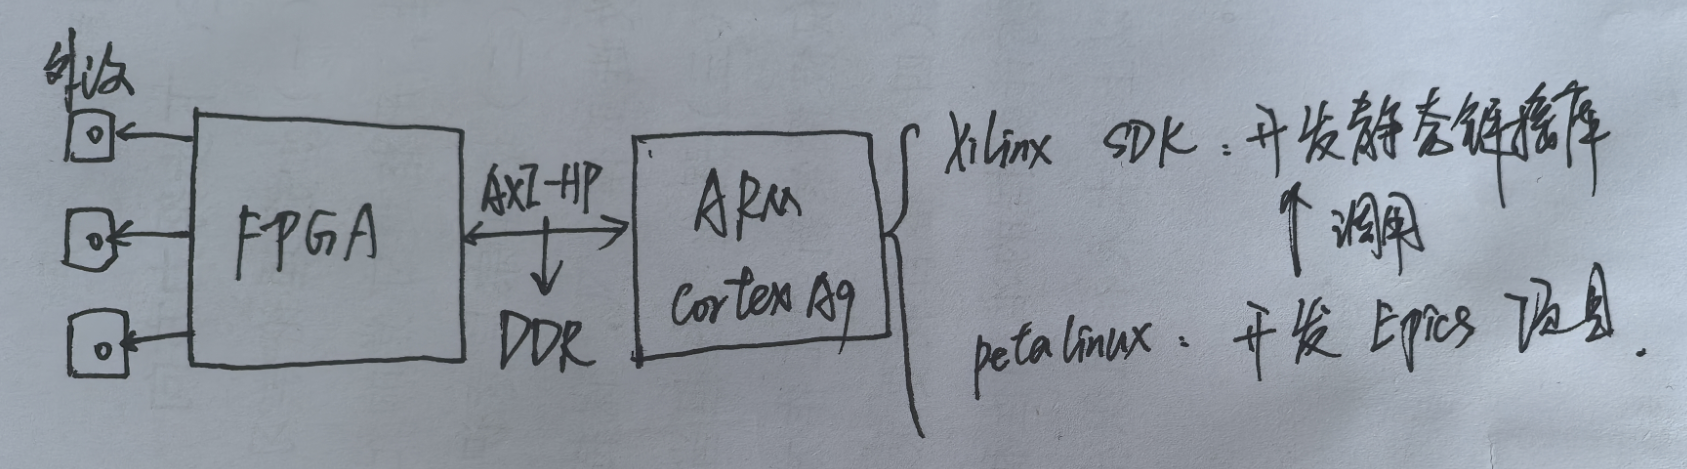 外设
FPGA
AXI-HP
DDR
ARM
Cortex A9
Xilinx SDK：开发静态链接库
调用
petalinux：开发 Epics 项目.